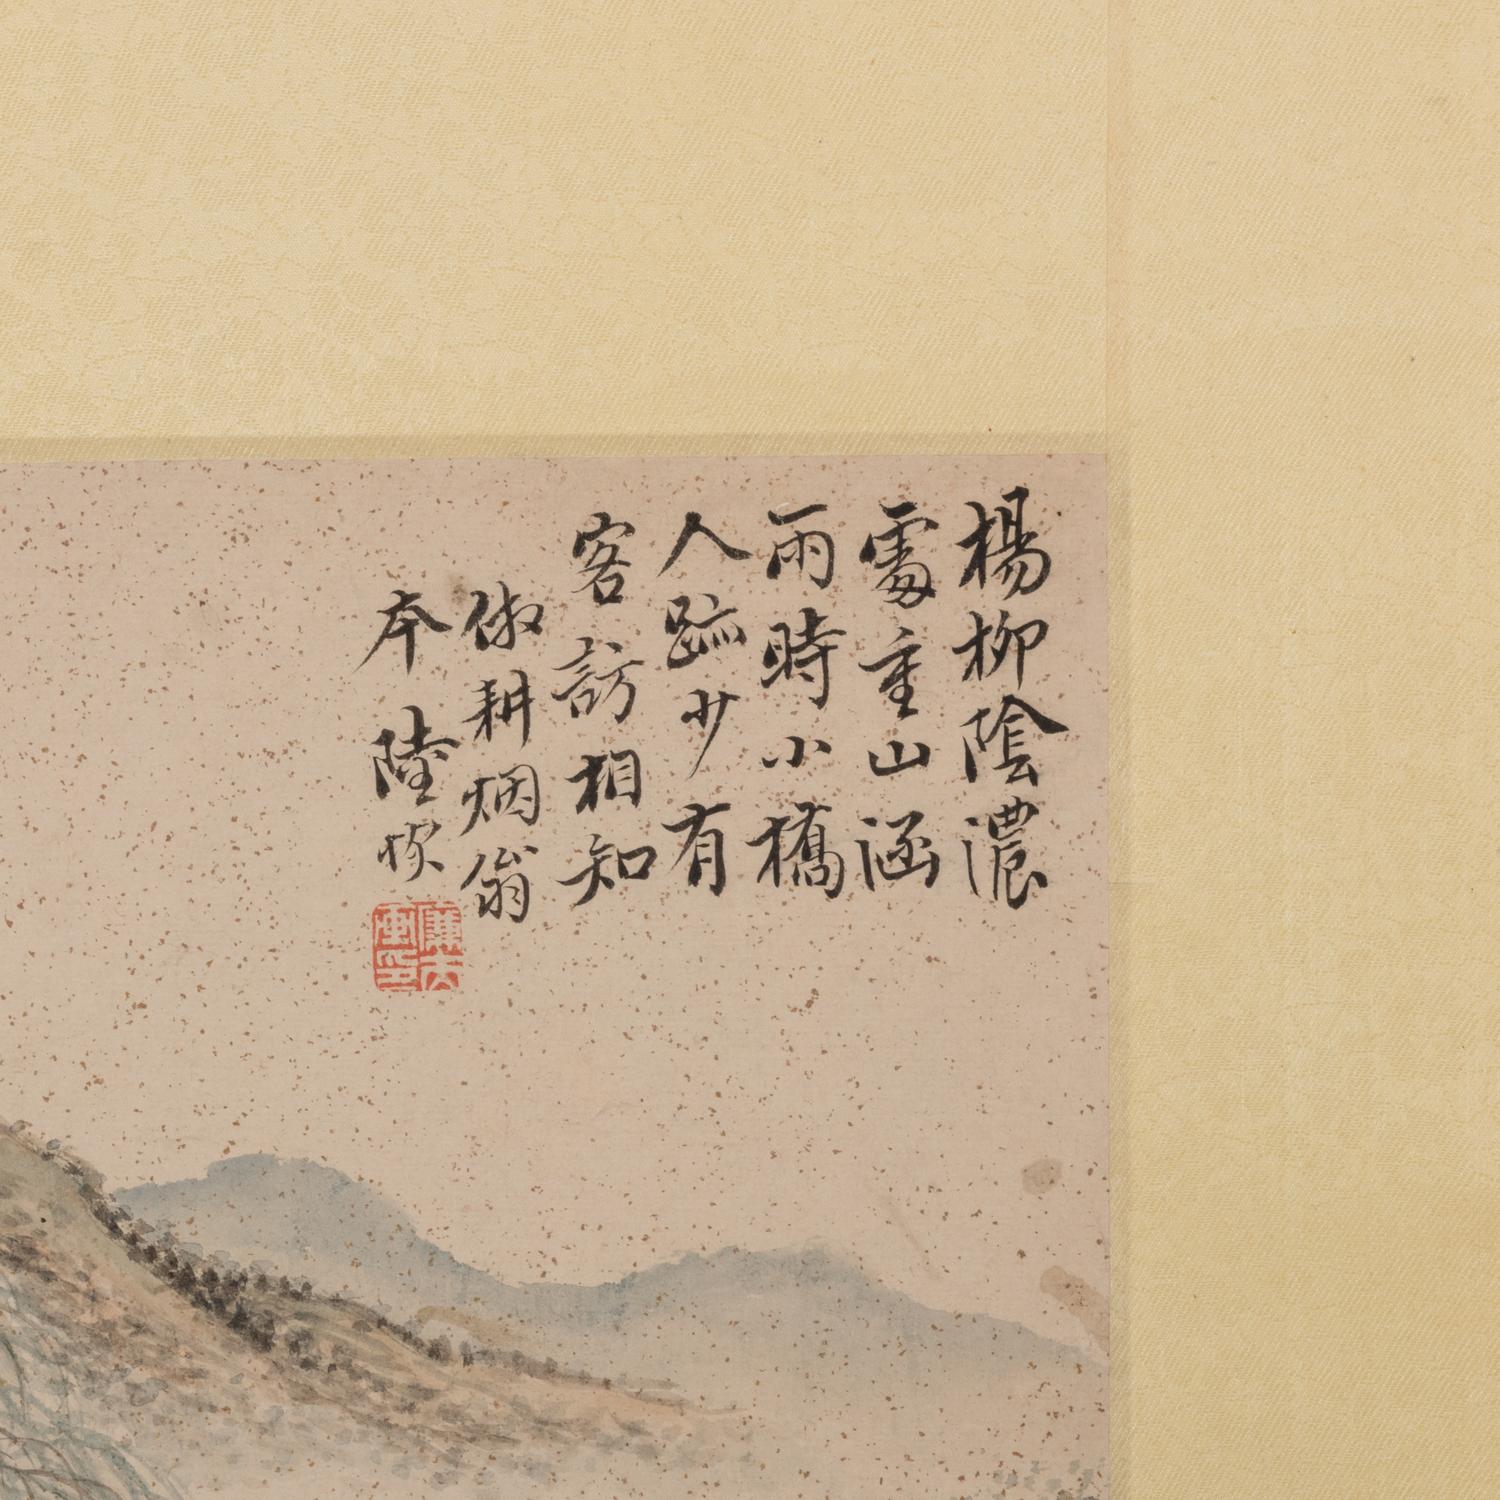 楊柳陰濃
露重山涵
雨時小橋
人跡少有
客訪相知
倣耕烟翁
本 陸恢
廉夫
画印